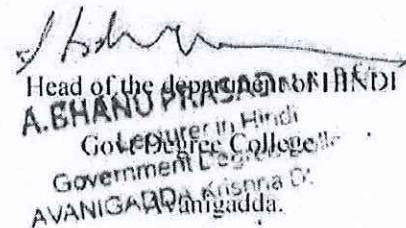 Head of the department of HINDI
A.BHANU PRASAD
Lecturer in Hindi
Govt Degree College
Government Degree College
AVANIGADDA Krishna Dt.
Avanigadda.